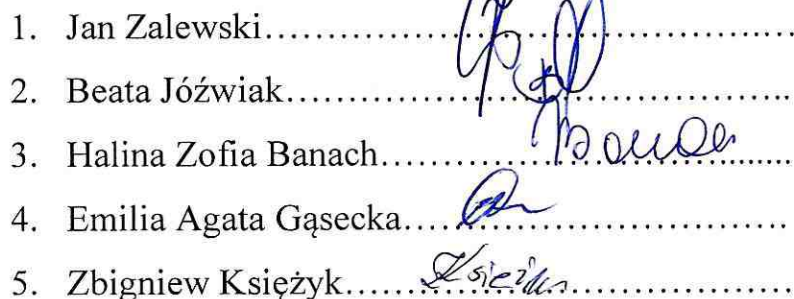 1. Jan Zalewski..........................................................
2. Beata Jóźwiak.......................................................
3. Halina Zofia Banach.............................................
4. Emilia Agata Gąsecka..........................................
5. Zbigniew Księżyk................................................